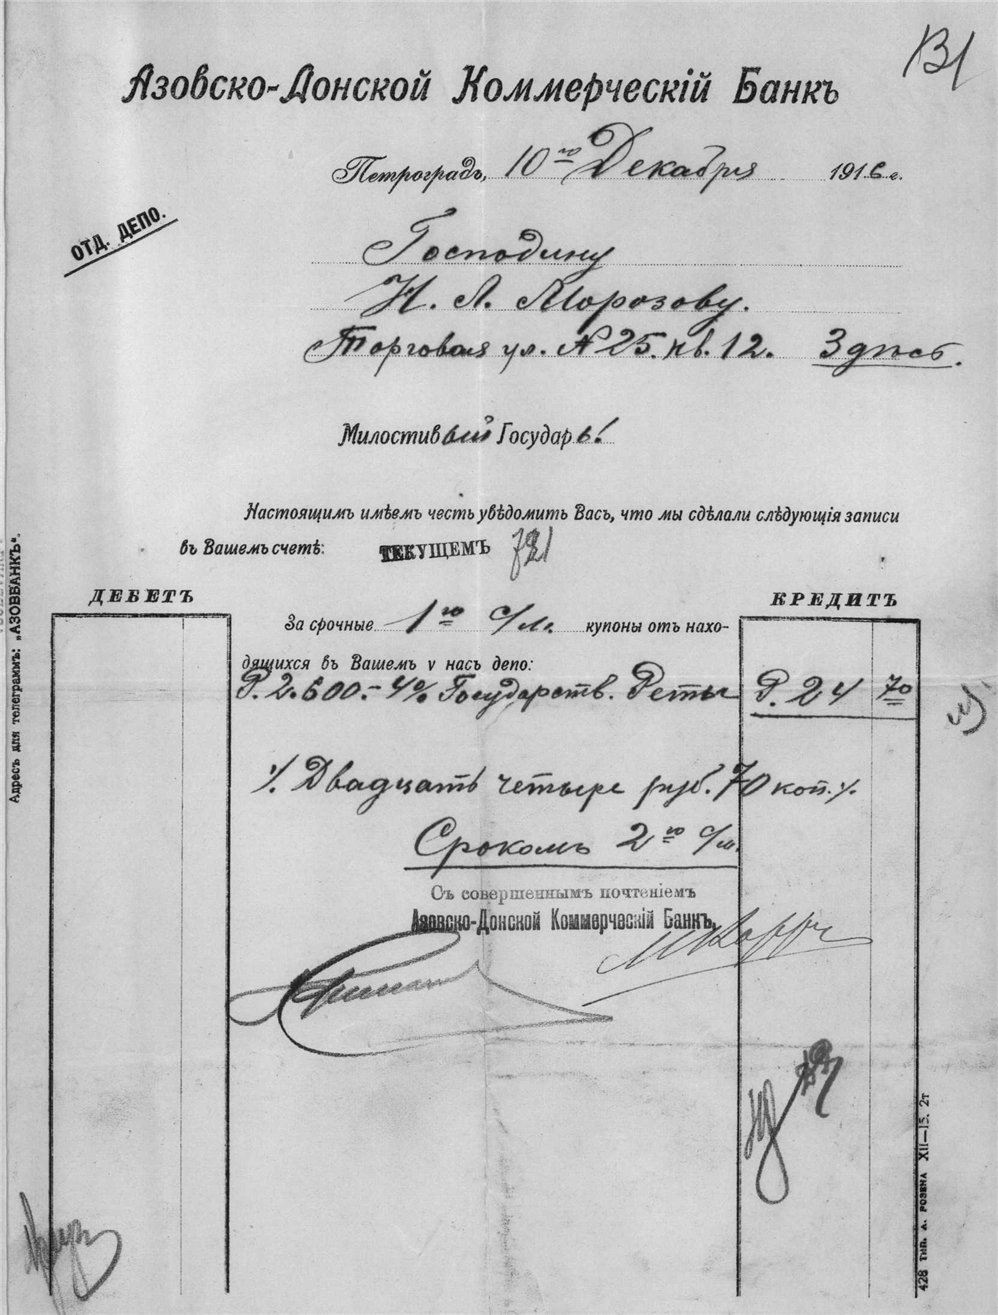 Азовско-Донской Коммерческій Банкъ
Петроградъ, 10го Декабря 1916 г.
ОТД. ДЕПО.
Господину
Н. А. Морозову.
Торговая ул. № 25. кв. 12.
Милостивый Государь!
Настоящимъ имѣемъ честь увѣдомить Васъ, что мы сдѣлали слѣдующія записи
въ Вашемъ счетѣ: ТЕКУЩЕМЪ
ДЕБЕТЪ
КРЕДИТЪ
За срочные 1го с/м. купоны отъ нахо-
дящихся въ Вашемъ у насъ депо:
Р. 2.600.- 4% Государств. Ренты Р. 24 70
Двадцать четыре руб. 70 коп.
Срокомъ 2го с/м.
Съ совершеннымъ почтеніемъ
Азовско-Донской Коммерческій Банкъ,
Адресъ для телеграммъ: „АЗОВБАНКЪ“.
428 ТИП. А. РОЗЕНА XII—15. 2т